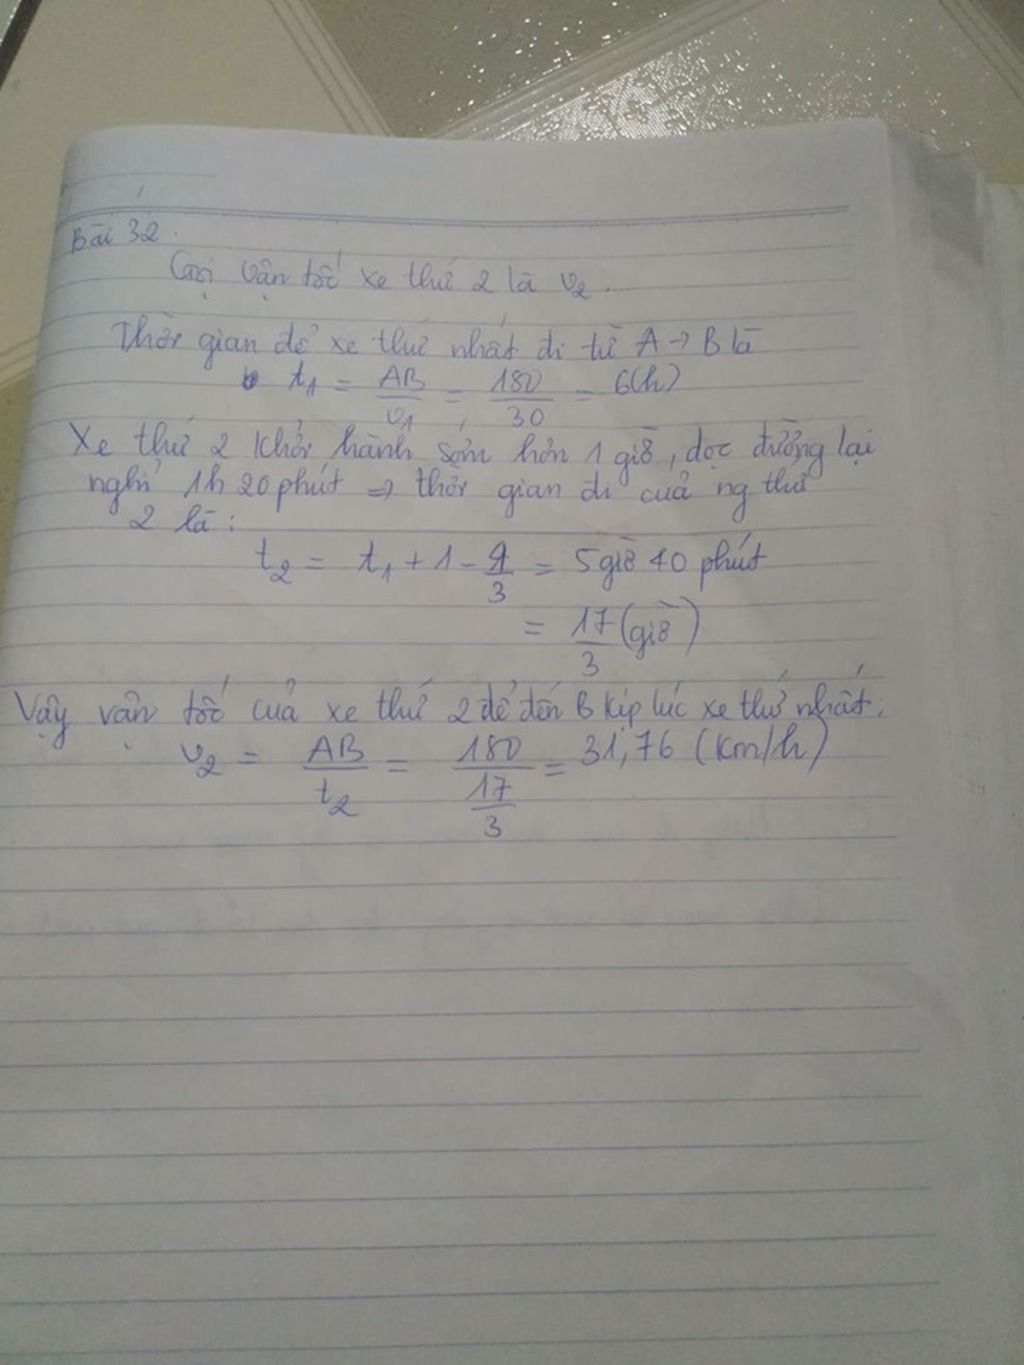 Bài 32.
Gọi vận tốc xe thứ 2 là v2.
Thời gian để xe thứ nhất đi từ A → B là
t1 = AB/v1 = 180/30 = 6(h)
Xe thứ 2 khởi hành sớm hơn 1 giờ, dọc đường lại
nghỉ 1h 20 phút => thời gian đi của ng thứ
2 là:
t2 = t1 + 1 - 4/3 = 5 giờ 40 phút
= 17/3 (giờ)
Vậy vận tốc của xe thứ 2 để đến B kịp lúc xe thứ nhất:
v2 = AB/t2 = 180/(17/3) = 31,76 (km/h)